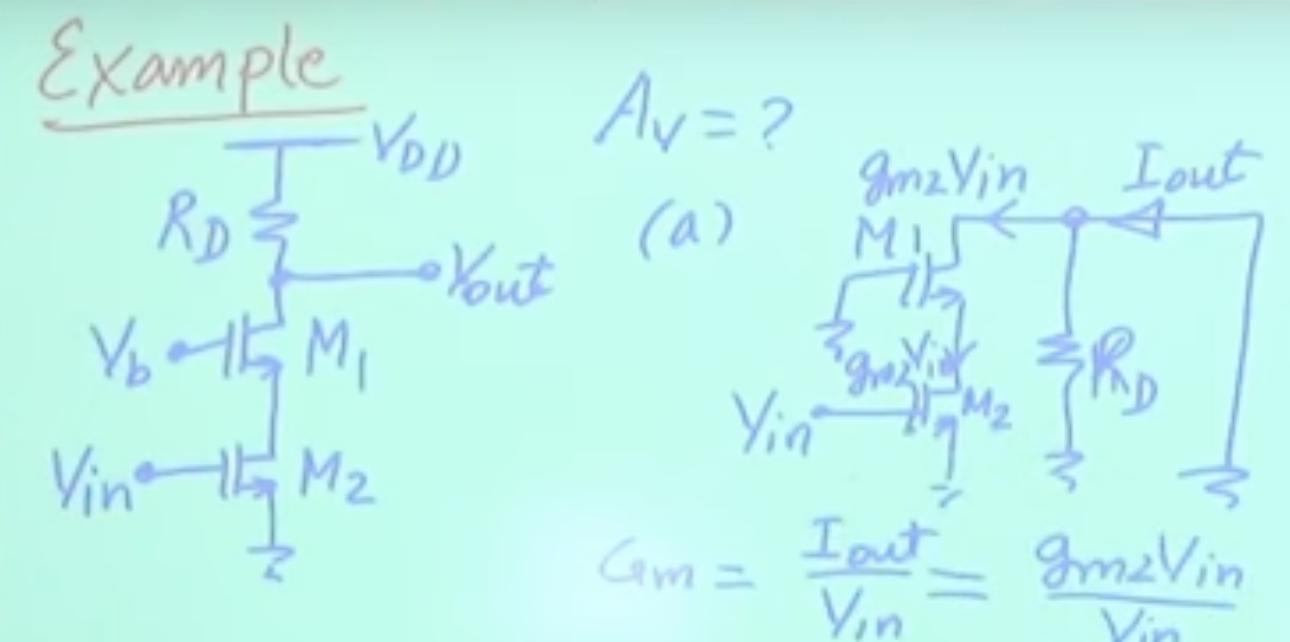 Example
VDD
RD
Vout
Vb
M1
Vin
M2
Av = ?
(a)
gm2Vin
Iout
M1
gm2Vin
RD
Vin
M2
Gm = Iout/Vin = gm2Vin/Vin